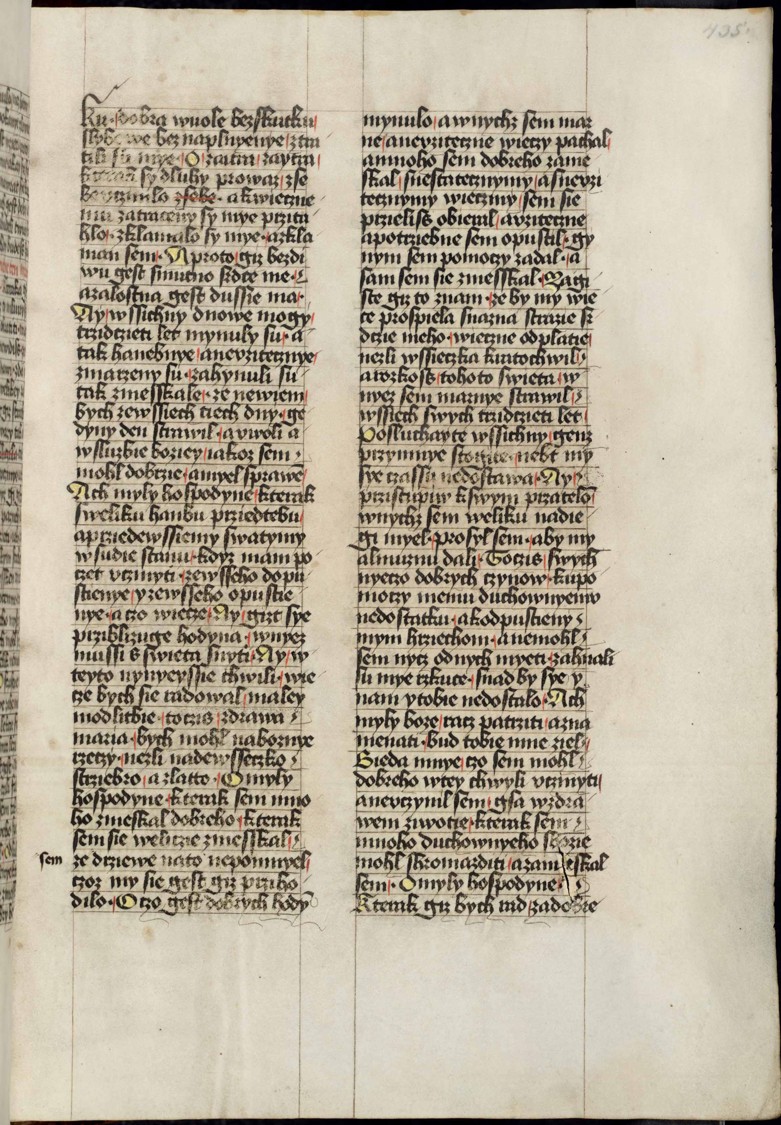 435.
ku · dobra wuole bezskutku
slybowe beznaplnyenye / ztra
tili su mye · O zaitra / zaytra /
sy dluhy prowaz / zse
zsebe · akwieczne
mu zatraceny sy mye przita
hlo · zklamalo sy mye · azkla
man sem · A proto giz bezdi
wu gest smutno srdce me ·
azalostna gest dussie ma ·
Ay / wssichny dnowe mogy /
trzidczieti let mynuly su · a
tak hanebnye / aneuziteczynye /
zmarzeny su · zahynuli su
tak zmesskale · ze newiem /
bych zewssiech tiech dny · ge
dyny den strawil · a vwoli a
wsluzbie boziey / iakoz sem
mohl dobrzie · amyel sprawe
Ach myly hospodyne · kterak
sweliku hanbu przedtebu /
aprzedewssiemy swatymy
wsudie stanu · kdyz mam po
czet vczinyti · zewsseho dopu
stienye / yzewsseho opustie
nye · a czo wiecze / Ay / gizt sye
prziblizuge hodyna · wnyez
mussi s swieta snyti · Ay / w
teyto nynyeyssie chwili · wie
cze bych sie radowal / maley
modlitbie · toczis / zdrawa
maria · bych mohl nabornye
rzeczy · nezli nadewsseczko
strziebro / a zlatto · O myly
hospodyne · kterak sem mno
ho zmeskal dobreho · kterak
sem sie welicze zmesskal /
sem
ze drziewe nato nepomnyel /
czoz my sie gest giz prziho
dilo · O czo gest dobrych hody
mynulo / awnychz sem mar
ne / aneuziteczne wieczy pachal /
amnoho sem dobreho zame
skal / snestatecznymy / asneuzi
tecznymy wieczmy / sem sie
przielis obieral / auziteczne
apotrziebne sem opustil · gy
nym sem pomoczy zadal · a
sam sem sie zmesskal · Zagi
ste giz to znam · ze by my wie
cze prospiela snazna strazie sr
dczie meho · wieczne odplatie /
nezli wssieczka kratochwil /
arozkos tohoto swieta · w
nyez sem marnye strawil /
wssiech swych trzidczieti let ·
Posluchayte wssichny / genz
przynmye stogite · nebt my
sye czassu nedostawa · Ay /
przistupiw kswym przatelo
wnychz sem weliku nadie
gi myel · prosyl sem · aby my
almuznu dali · Toczis / swych
nyeczo dobrych czynow · kupo
moczy memu duchownyemv
nedostatku / akodpustieny
mym hrziechom / anemohl
sem nycz odnych myeti · zahnali
su mye rzkuce · snad by sye y
nam ytobie nedostalo · Ach
myly boze / racz patrziti / azna
menati · bud tobie mne ziel /
Bieda mnye / czo sem mohl
dobreho wtey chwyli vczinyti /
aneuczynyl sem · gsa wzdra
wem zywotie · kterak sem
mnoho duchownyeho sbozie
mohl shromazditi / azameskal
sem · O myly hospodyne /
Kterak giz bych rad / zadobrie